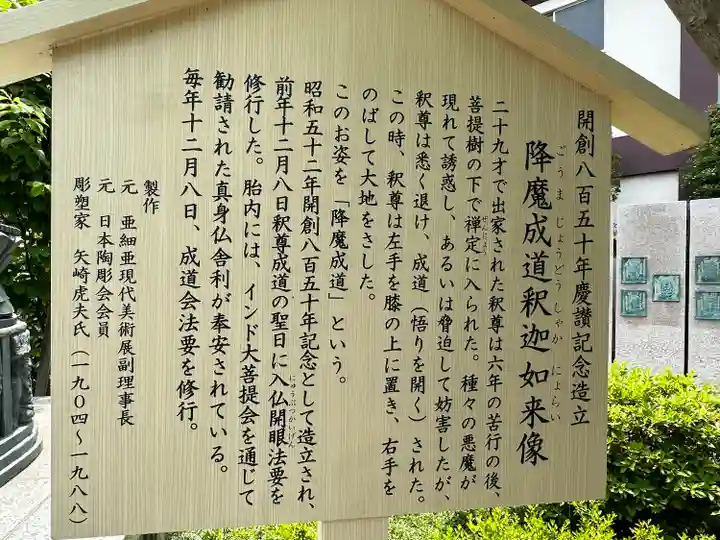 開創八百五十年慶讃記念造立
降魔成道釈迦如来像
ごうま じょうどう しゃか にょらい
二十九才で出家された釈尊は六年の苦行の後、
菩提樹の下で禅定に入られた。種々の悪魔が
ぜんじょう
現れて誘惑し、あるいは脅迫して妨害したが、
釈尊は悉く退け、成道（悟りを開く）された。
この時、釈尊は左手を膝の上に置き、右手を
のばして大地をさした。
このお姿を「降魔成道」という。
昭和五十二年開創八百五十年記念として造立され、
前年十二月八日釈尊成道の聖日に入仏開眼法要を
にゅうぶつかいげん
修行した。胎内には、インド大菩提会を通じて
勧請された真身仏舎利が奉安されている。
毎年十二月八日、成道会法要を修行。
製作
元 亜細亜現代美術展副理事長
元 日本陶彫会会員
彫塑家 矢崎虎夫氏（一九〇四〜一九八八）